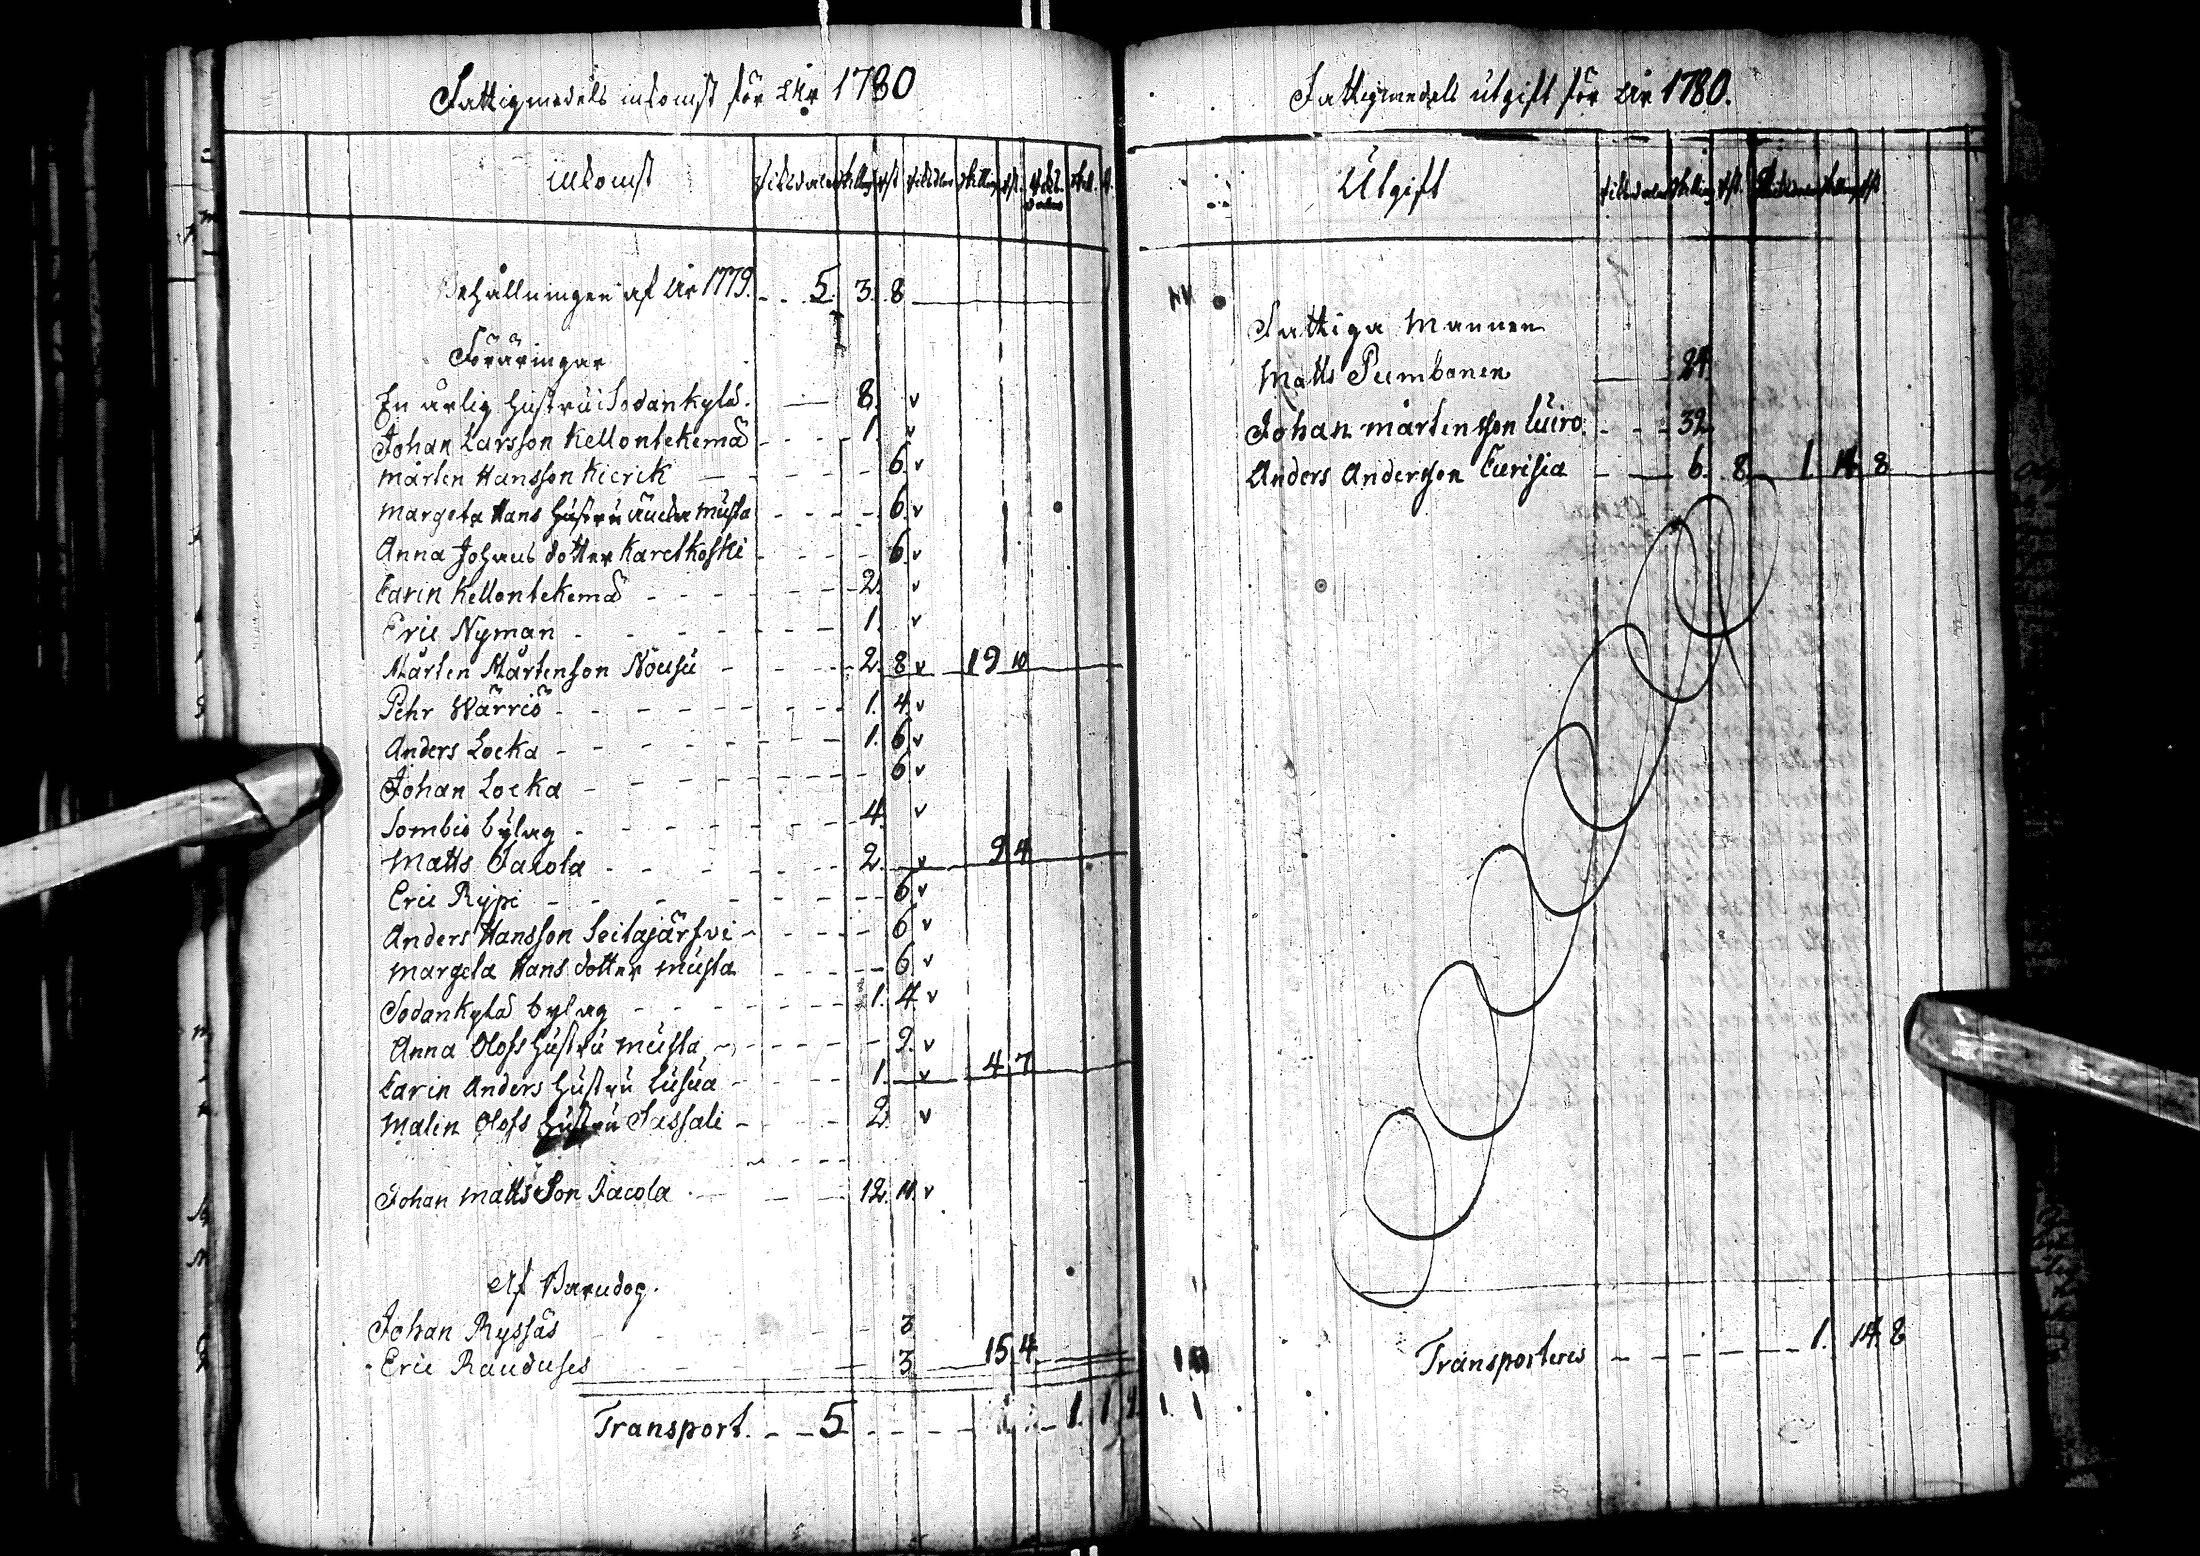 Fattigmedels inkomst för år 1780
inkomst
Behållningen af år 1779. 5. 3. 8
Föräringar
En ärlig hustru i Sodankylä. 8. v
Johan Larsson Kellontekemä 1. v
mårten Hansson Kierik 6. v
margeta Hans hustru musta 6. v
Anna Johans dotter Karelkoski 6. v
Carin Kellontekemä 2. v
Eric Nyman 1. v
Mårten Mårtenson Nousu 2. 8 v 19 10
Pehr Wärriö 1. 4. v
Anders Locka 1. 6 v
Johan Locka 6 v
Sombio bylag 4. v
Matts Jacola 2. v 9 4
Eric Rypi 6 v
Anders Hansson Seitajärfvi 6 v
margeta Hans dotter musta 6. v
Sodankylä bylag 1. 4. v
Anna Olofs hustru musta 9. v
Carin Anders hustru Lusua 1. v 4 7
Malin Olofs hustru Sassali 2 v
Johan matts Son Jacola 12. 11. v
Af Barndop.
Johan Ryssäs 3
Eric Rauduses 3 15 4
Transport. 5
Fattigmedels utgift för år 1780.
Utgift
Fattiga Mannen
Matts Pumbanen 24.
Johan mårtensson Luiro. 32.
Anders Andersson Curisia 6. 8. 1. 14. 8
Transporteres 1. 14. 8